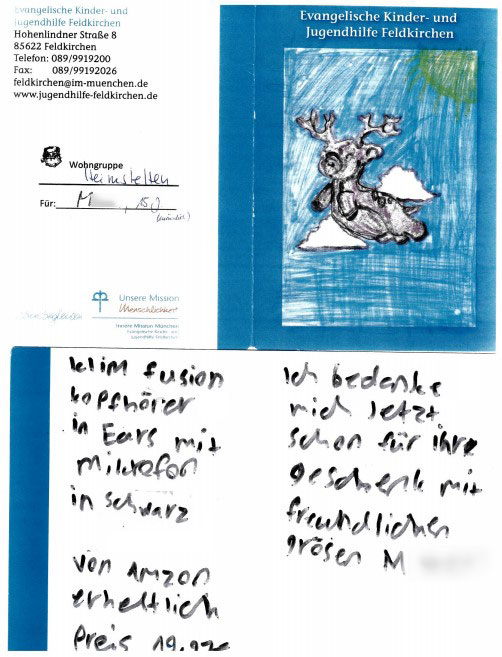 Evangelische Kinder- und
Jugendhilfe Feldkirchen
Hohenlindner Straße 8
85622 Feldkirchen
Telefon: 089/9919200
Fax: 089/99192026
feldkirchen@im-muenchen.de
www.jugendhilfe-feldkirchen.de
Wohngruppe
Heimstetten
Für: M , 15J
(männlich)
Unsere Mission
Menschlichkeit
Innere Mission München
Evangelische Kinder- und
Jugendhilfe Feldkirchen
Evangelische Kinder- und
Jugendhilfe Feldkirchen
klim fusion
kopfhörer
in Ears mit
mikrofon
in schwarz
von Amzon
erheltlich
Preis 19,92€
Ich bedanke
mich Jetzt
schon für ihre
geschenk mit
freundlichen
grösen M